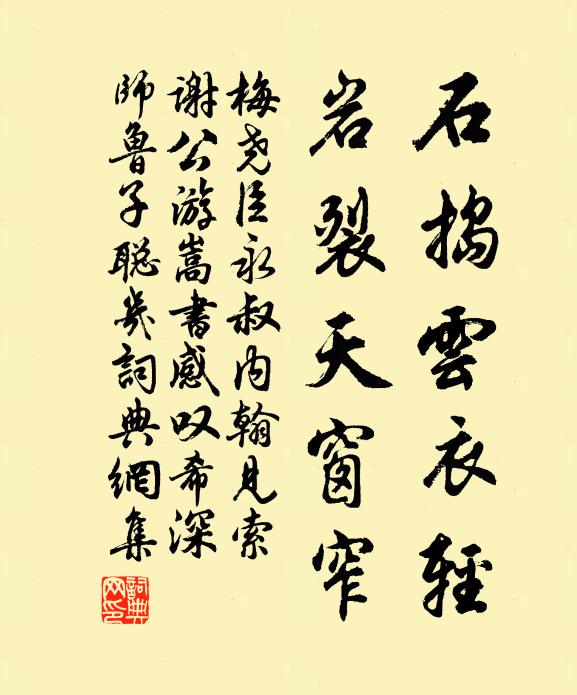 石搗雲衣輕
岩裂天窗窄
梅堯臣永叔内翰見索
謝公游嵩書感叹希深
師魯子聪幾詞典網集
詞典網印